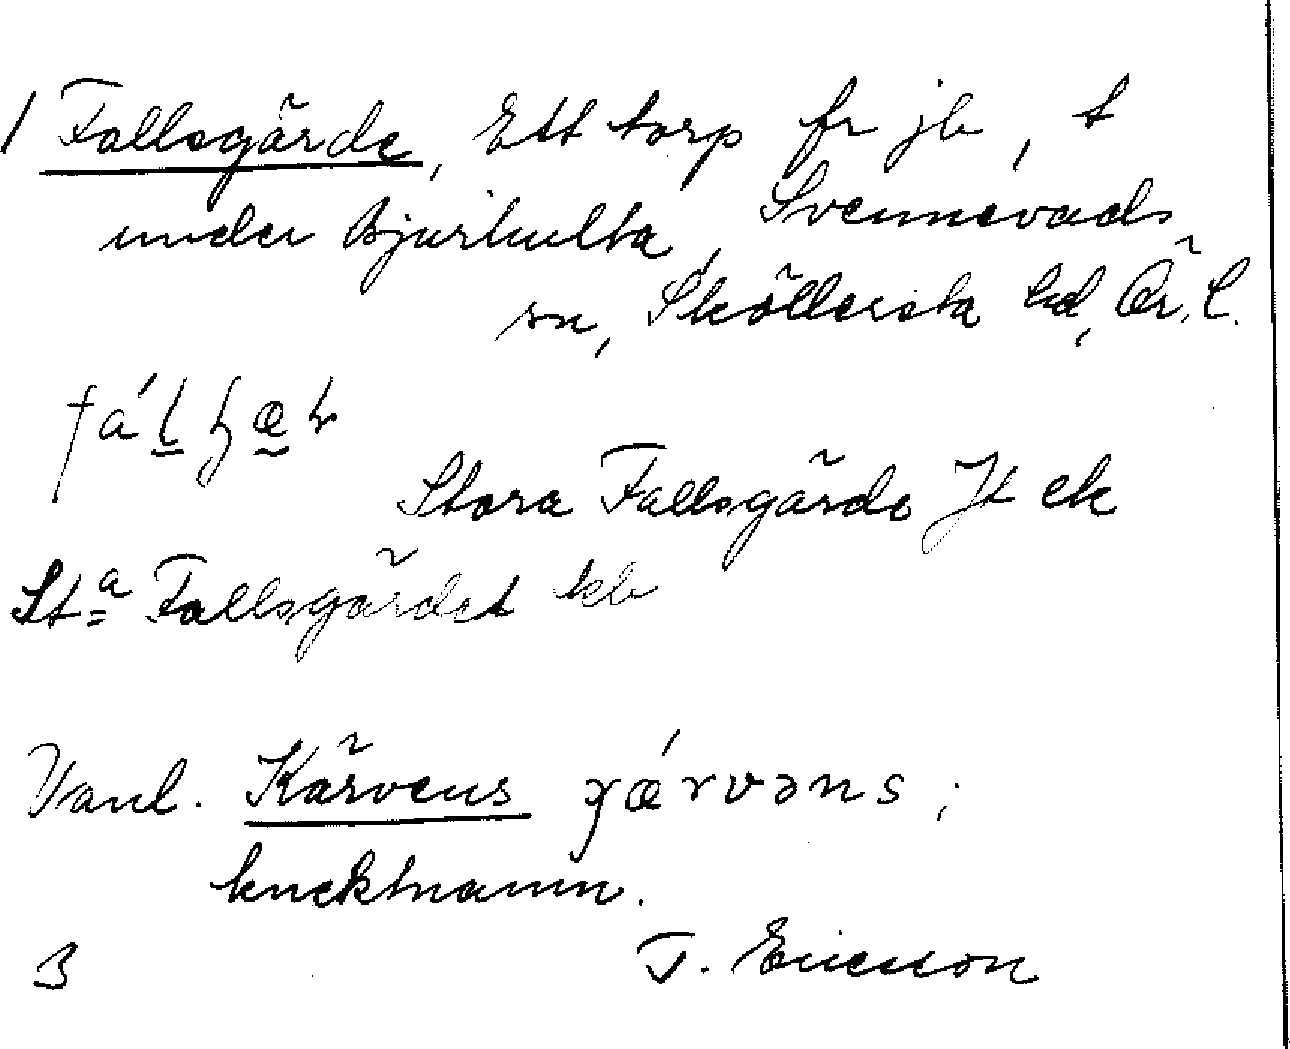 1 Fallsgärde, Ett torp fr jb, t
under Bjurhulta, Svennevads
sn, Sköllersta hd, Ör. l.
Stora Fallsgärde Jt ek
St<sup>a</sup> Fallsgärdet kb
Vanl. Kärvens
knektnamn.
3 T. Ericsson